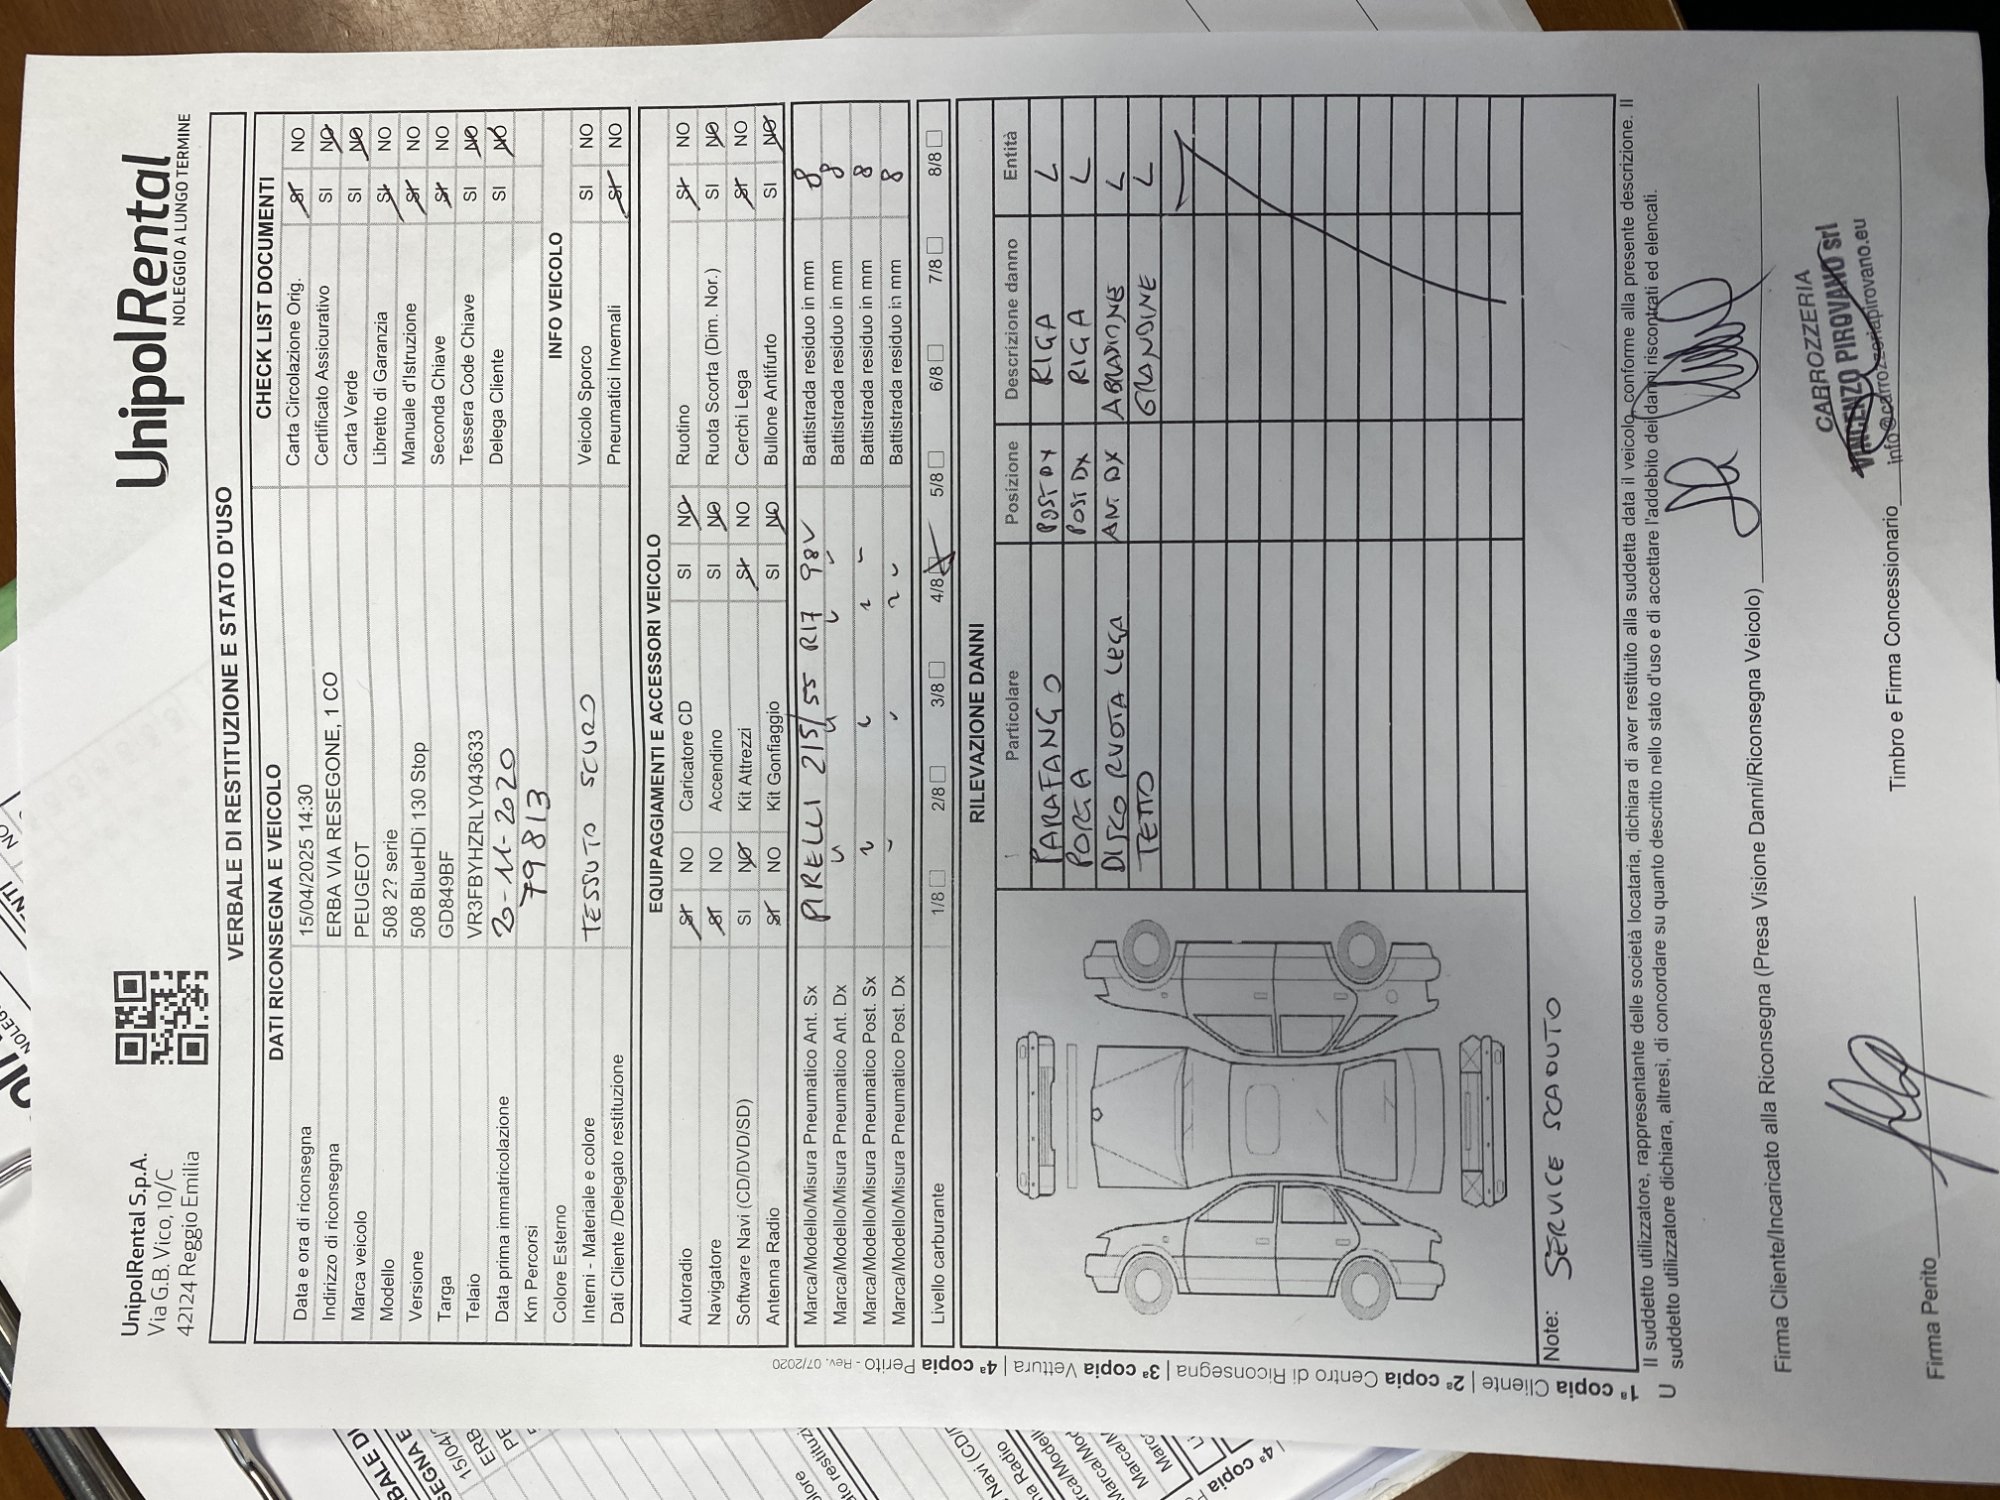 UnipolRental S.p.A.
Via G.B. Vico, 10/C
42124 Reggio Emilia
UnipolRental
NOLEGGIO A LUNGO TERMINE
VERBALE DI RESTITUZIONE E STATO D'USO
DATI RICONSEGNA E VEICOLO CHECK LIST DOCUMENTI
Data e ora di riconsegna 15/04/2025 14:30 Carta Circolazione Orig. SI NO
Indirizzo di riconsegna ERBA VIA RESEGONE, 1 CO Certificato Assicurativo SI NO
Marca veicolo PEUGEOT Carta Verde SI NO
Modello 508 2? serie Libretto di Garanzia SI NO
Versione 508 BlueHDi 130 Stop Manuale d'Istruzione SI NO
Targa GD849BF Seconda Chiave SI NO
Telaio VR3FBYHZRLY043633 Tessera Code Chiave SI NO
Data prima immatricolazione 20-11-2020 Delega Cliente SI NO
Km Percorsi 79813
Colore Esterno INFO VEICOLO
Interni - Materiale e colore TESSUTO SCURO Veicolo Sporco SI NO
Dati Cliente /Delegato restituzione Pneumatici Invernali SI NO
EQUIPAGGIAMENTI E ACCESSORI VEICOLO
Autoradio SI NO Caricatore CD SI NO Ruotino SI NO
Navigatore SI NO Accendino SI NO Ruota Scorta (Dim. Nor.) SI NO
Software Navi (CD/DVD/SD) SI NO Kit Attrezzi SI NO Cerchi Lega SI NO
Antenna Radio SI NO Kit Gonfiaggio SI NO Bullone Antifurto SI NO
Marca/Modello/Misura Pneumatico Ant. Sx PIRELLI 215/55 R17 98V Battistrada residuo in mm 8
Marca/Modello/Misura Pneumatico Ant. Dx Battistrada residuo in mm 8
Marca/Modello/Misura Pneumatico Post. Sx Battistrada residuo in mm 8
Marca/Modello/Misura Pneumatico Post. Dx Battistrada residuo in mm 8
Livello carburante 1/8 2/8 3/8 4/8 5/8 6/8 7/8 8/8
RILEVAZIONE DANNI
Particolare Posizione Descrizione danno Entità
PARAFANGO POST DX RIGA L
PORTA POST DX RIGA L
DISCO RUOTA LEGA ANT DX ABRASIONE L
TETTO GRANDINE L
Note: SERVICE SCADUTO
Il suddetto utilizzatore, rappresentante delle società locataria, dichiara di aver restituito alla suddetta data il veicolo, conforme alla presente descrizione. Il
suddetto utilizzatore dichiara, altresì, di concordare su quanto descritto nello stato d'uso e di accettare l'addebito dei danni riscontrati ed elencati.
U
Firma Cliente/Incaricato alla Riconsegna (Presa Visione Danni/Riconsegna Veicolo)
Firma Perito
Timbro e Firma Concessionario
CARROZZERIA
VINCENZO PIROVANO srl
info@carrozzeriapirovano.eu
1ª copia Cliente | 2ª copia Centro di Riconsegna | 3ª copia Vettura | 4ª copia Perito - Rev. 07/2020